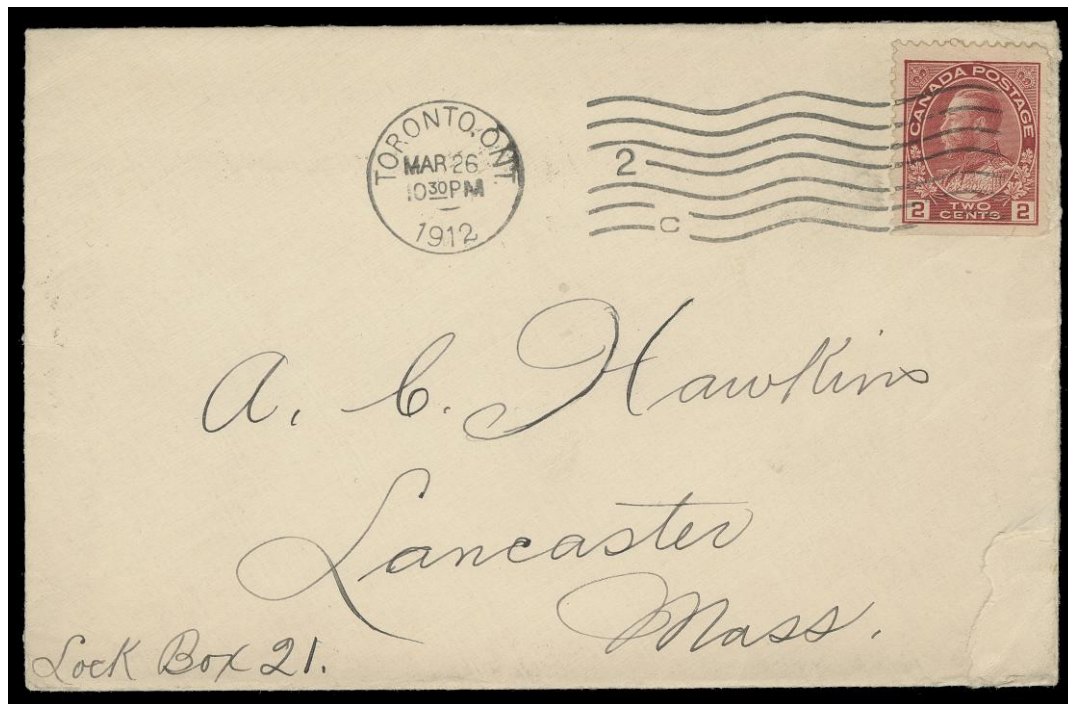 TORONTO, ONT
MAR 26
10 30 PM
1912
2
C
CANADA POSTAGE
2 TWO CENTS 2
A. C. Hawkins
Lancaster
Mass.
Lock Box 21.